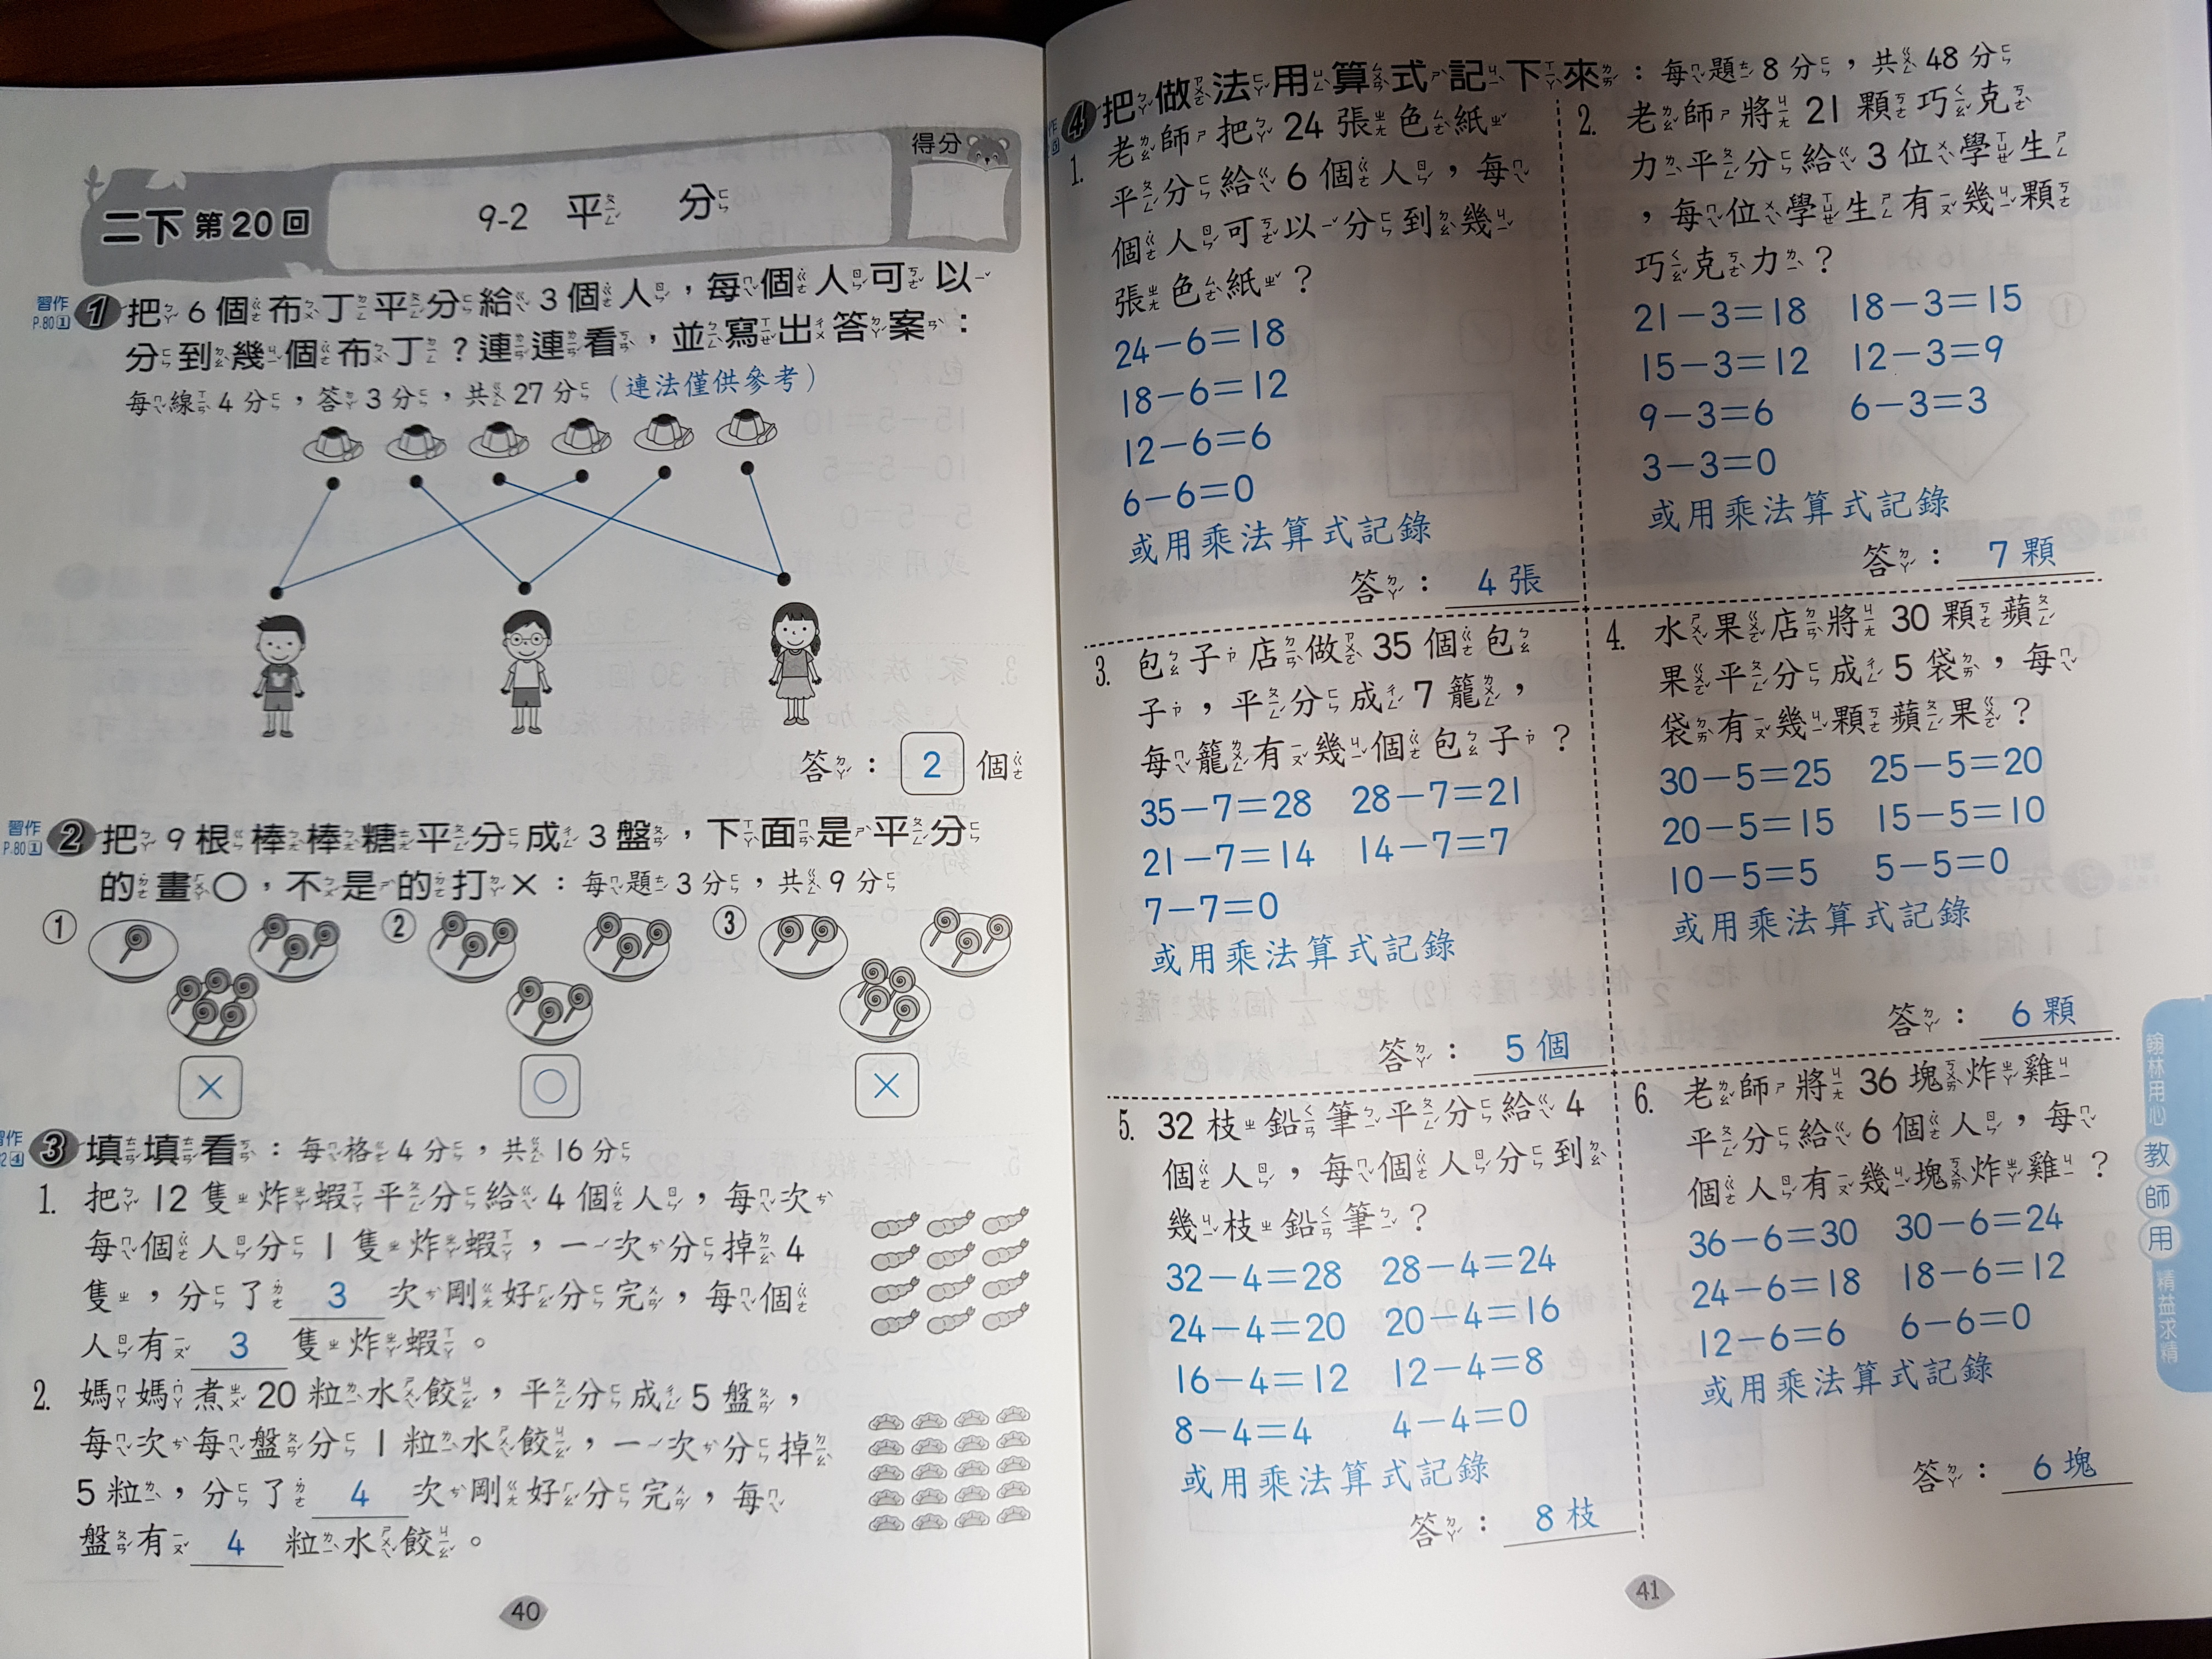 二下 第20回
9-2 平分
得分
習作
P.80 1
1 把6個布丁平分給3個人，每個人可以
分到幾個布丁？連連看，並寫出答案：
每線4分，答3分，共27分（連法僅供參考）
答：2個
習作
P.80 1
2 把9根棒棒糖平分成3盤，下面是平分
的畫○，不是的打×：每題3分，共9分
① ② ③
× ○ ×
習作
3 填填看：每格4分，共16分
1. 把12隻炸蝦平分給4個人，每次
每個人分1隻炸蝦，一次分掉4
隻，分了 3 次剛好分完，每個
人有 3 隻炸蝦。
2. 媽媽煮20粒水餃，平分成5盤，
每次每盤分1粒水餃，一次分掉
5粒，分了 4 次剛好分完，每
盤有 4 粒水餃。
40
4 把做法用算式記下來：每題8分，共48分
1. 老師把24張色紙
平分給6個人，每
個人可以分到幾
張色紙？
24－6＝18
18－6＝12
12－6＝6
6－6＝0
或用乘法算式記錄
答：4張
2. 老師將21顆巧克
力平分給3位學生
，每位學生有幾顆
巧克力？
21－3＝18 18－3＝15
15－3＝12 12－3＝9
9－3＝6 6－3＝3
3－3＝0
或用乘法算式記錄
答：7顆
3. 包子店做35個包
子，平分成7籠，
每籠有幾個包子？
35－7＝28 28－7＝21
21－7＝14 14－7＝7
7－7＝0
或用乘法算式記錄
答：5個
4. 水果店將30顆蘋
果平分成5袋，每
袋有幾顆蘋果？
30－5＝25 25－5＝20
20－5＝15 15－5＝10
10－5＝5 5－5＝0
或用乘法算式記錄
答：6顆
5. 32枝鉛筆平分給4
個人，每個人分到
幾枝鉛筆？
32－4＝28 28－4＝24
24－4＝20 20－4＝16
16－4＝12 12－4＝8
8－4＝4 4－4＝0
或用乘法算式記錄
答：8枝
6. 老師將36塊炸雞
平分給6個人，每
個人有幾塊炸雞？
36－6＝30 30－6＝24
24－6＝18 18－6＝12
12－6＝6 6－6＝0
或用乘法算式記錄
答：6塊
翰林用心 教師用 精益求精
41